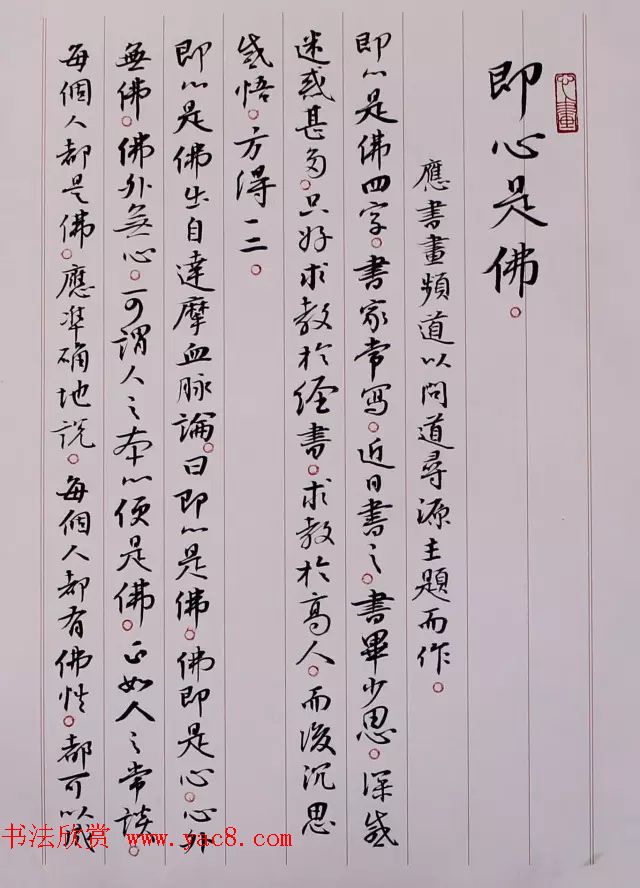 即心是佛。
應書畫頻道以问道尋源主題而作。
即心是佛四字。書家常写。近日書之。書畢少思。深感
迷惑甚多。只好求教於经書。求教於高人。而後沉思
感悟。方得一二。
即心是佛出自達摩血脉論。曰即心是佛。佛即是心。心外
無佛。佛外无心。可謂人之本心便是佛。正如人之常談。
每個人都是佛。應準确地説。每個人都有佛性。都可以成
书法欣赏 www.yac8.com